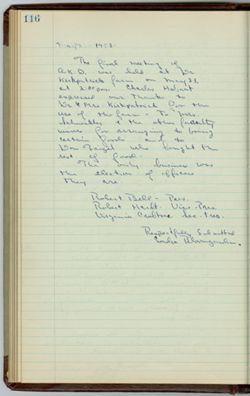 116
The final meeting of
A.K.D. was held at Dr
Kirkpatrick farm on May 22
at 2:00 P.M. Charles
expressed our thanks to
Dr & Mrs. Kirkpatrick for the
use of the farm - To Mrs.
& the other faculty
wives for arranging to bring
certain foods and to
Don who bought the
rest of food.
The only business was
the election of officers
They are
Robert Bell - Pres.
Robert Vice Pres
Virginia Sec. Treas.
Respectfully Submitted